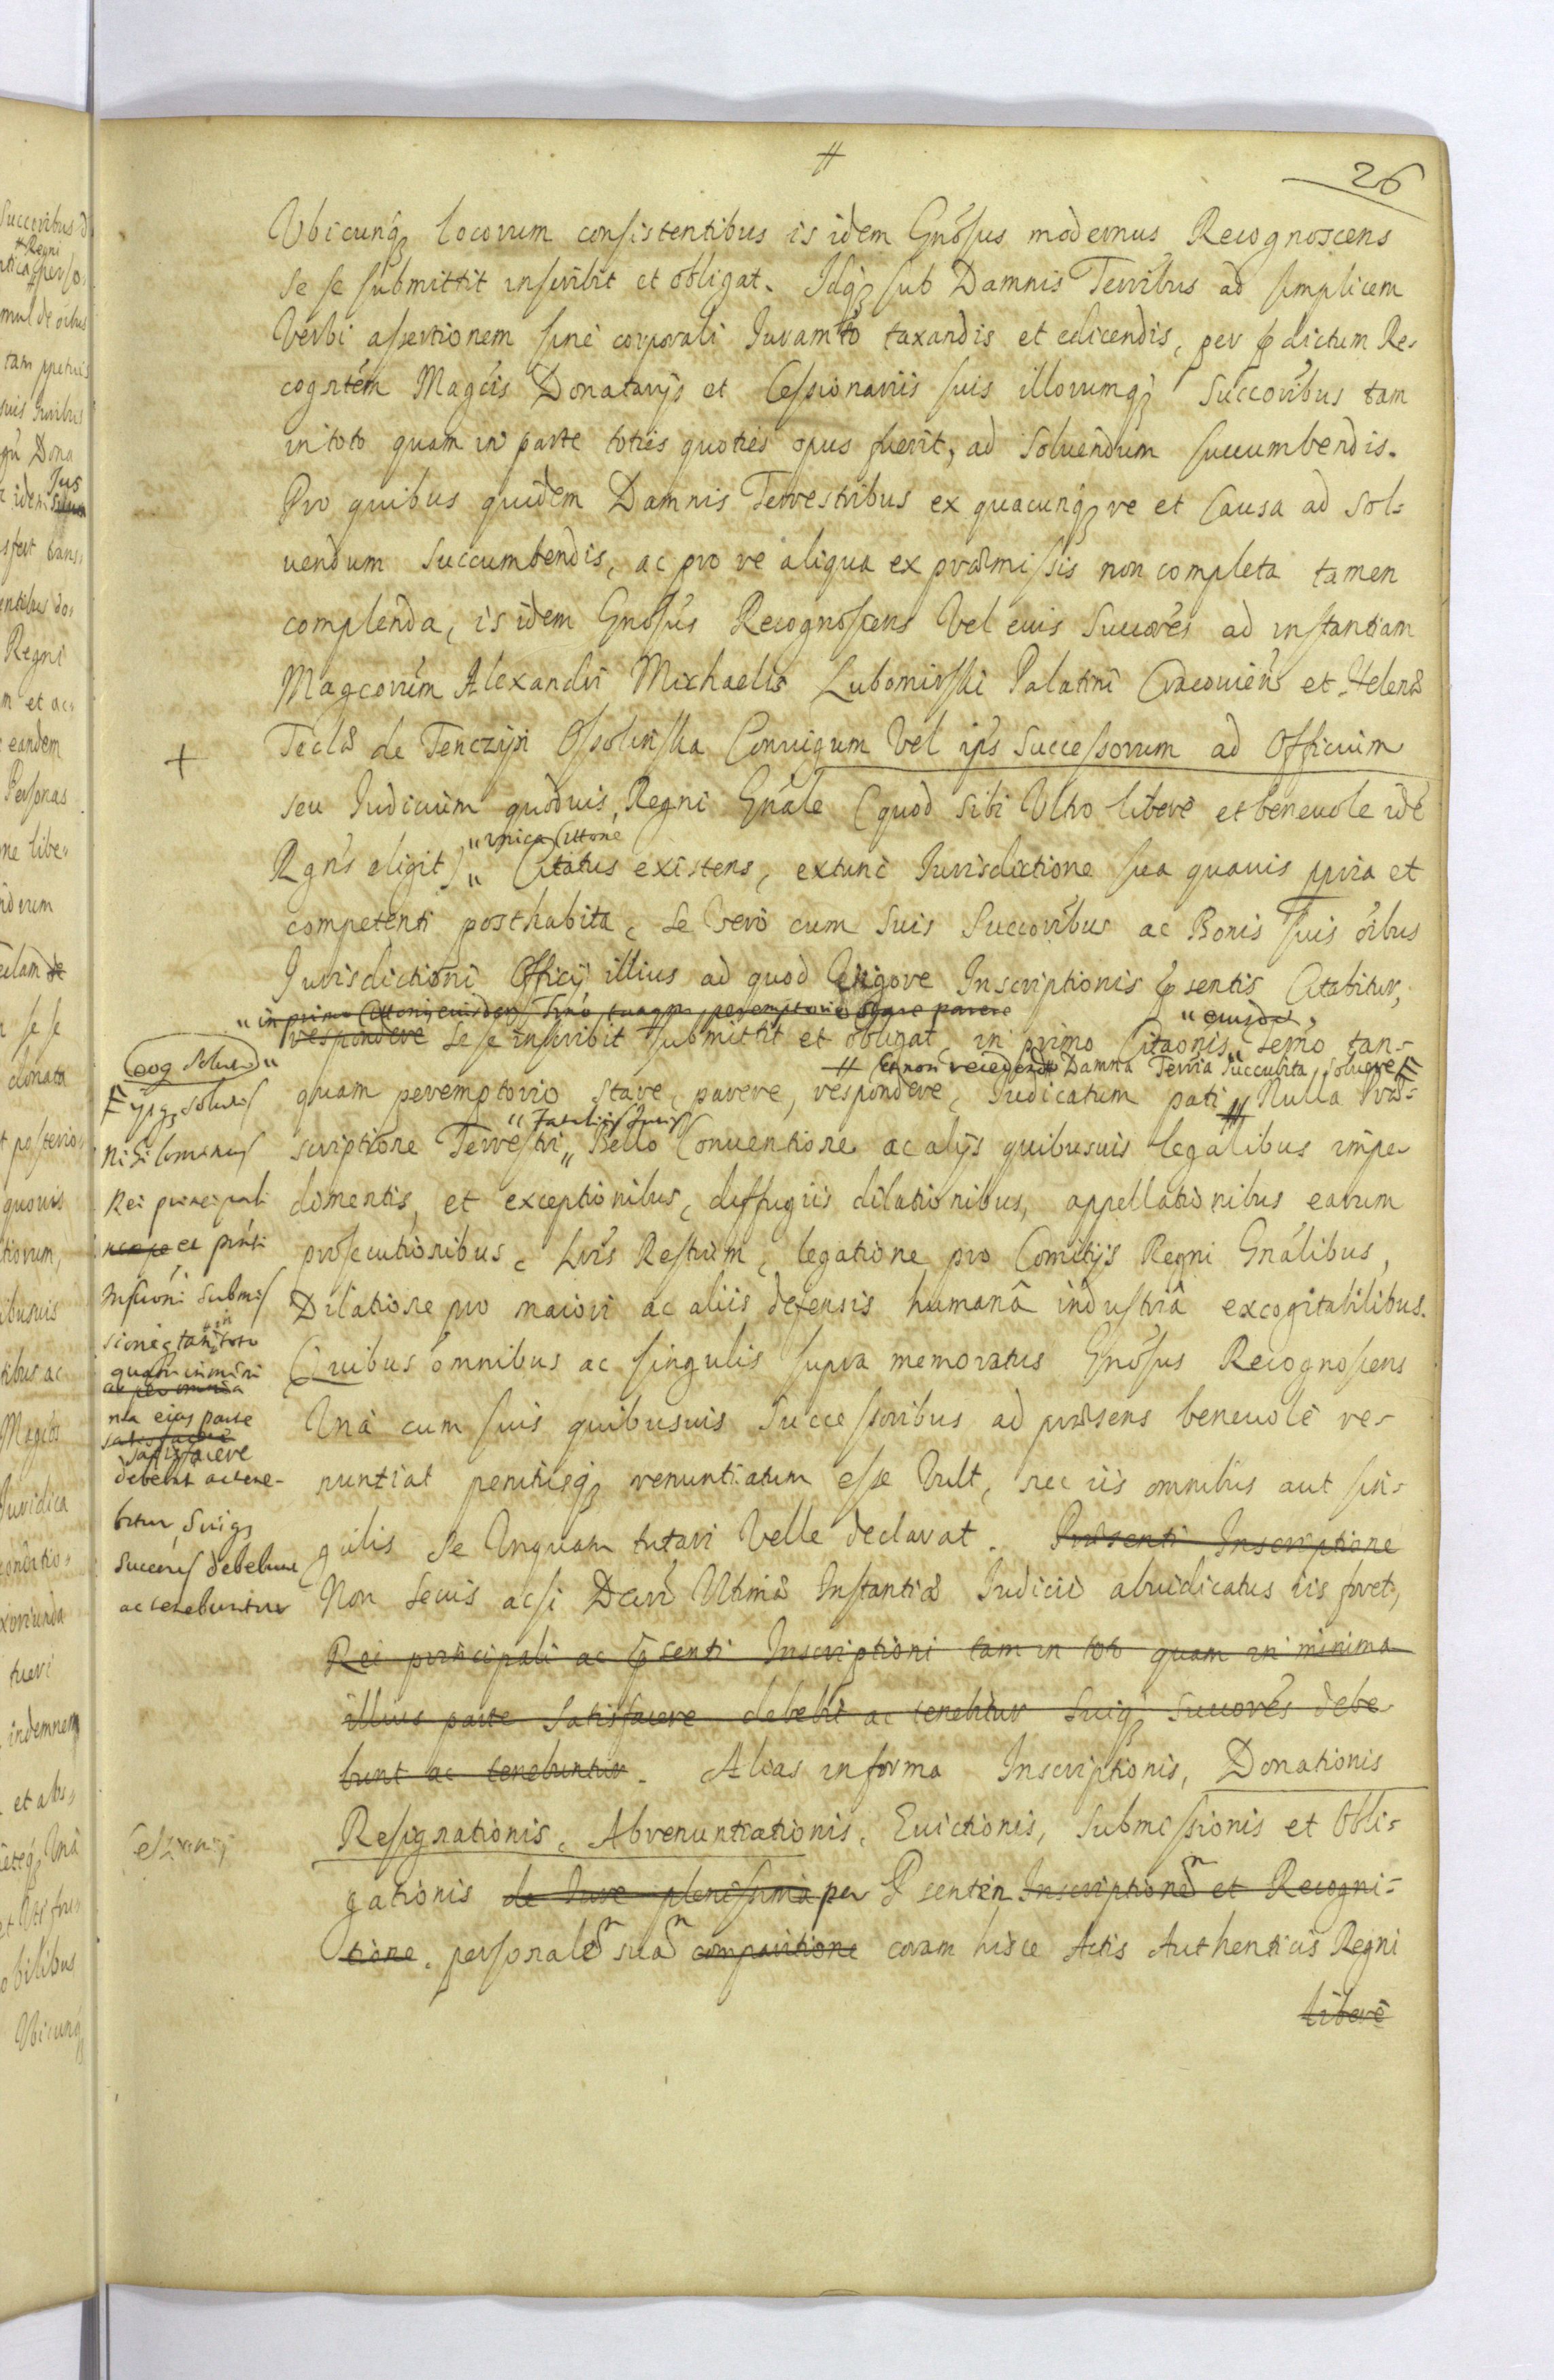 #
26
Ubicunq; locorum consistentibus is idem Gnosus modernus Recognoscens
se se submittit inscribit et obligat. Idq; sub Damnis Terribus ad simplicem
Verbi assertionem sine corporali Juramto taxandis et edicendis, per pdictum Re-
cogntem Magcis Donatarijs et Cessionariis suis illorumq; Succoribus tam
in toto quam in parte toties quoties opus fuerit, ad soluendum succumbendis.
Pro quibus quidem Damnis Terrestribus ex quacunq; re et Causa ad sol-
uendum succumbendis, ac pro re aliqua ex præmissis non completa tamen
complenda, is idem Gnosus Recognoscens Vel eius Succores ad instantiam
Magcorum Alexandri Michaelis Lubomirski Palatini Cracouiens et Helenæ
+ Teclæ de Tenczyn Ossolinska Coniugum Vel ips Successorum ad Officium
seu Iudicium quoduis Regni Gnale (quod sibi Ultro libere et beneuole ide
"unica Cittone
Rgns eligit)" Citatus existens, extunc Jurisdictione sua quauis ppria et
competenti posthabita, se vero cum suis Succoribus ac Bonis suis oibus
Jurisdictioni Officij illius ad quod Uigore Inscriptionis psentis Citabitur,
"in primo Cittonis eiusdem Tno tanqm peremptorie stare parere
respondere se se inscribit submittit et obligat, in primo Citaonis "eiusdem" termo tan-
# et non recedendo Damna Terria succubita soluere
quam peremptorio stare, parere, respondere, Iudicatum pati # Nulla Præ-
"Fatalijs Juris
scriptione Terrestri" Bello Conuentione ac alijs quibusuis legalibus impe-
dimentis, et exceptionibus, diffugiis dilationibus, appellationibus earum
prosecutionibus, Lris Restrium, legatione pro Comitijs Regni Gnalibus,
Dilatione pro maiori ac aliis defensis humanâ industriâ excogitabilibus.
Quibus omnibus ac singulis supra memoratus Gnosus Recognoscens
Unà cum suis quibusuis Successoribus ad præsens beneuole re-
nuntiat penitusq; renuntiatum esse Vult, nec iis omnibus aut sin-
gulis se Unquam tutari Velle declarat. Præsenti Inscriptione
Non secus acsi Decri Ultimæ Instantiæ Iudicii abiudicatus iis foret,
Rei principali ac psenti Inscriptioni tam in toto quam in minima
illius parte Satisfacere debebit ac tenebitur Suiq; Succores debe-
bunt ac tenebuntur. Alias in forma Inscriptionis, Donationis
Resignationis, Abrenuntiationis, Euictionis, Submissionis et Obli-
gationis de Jure plenissima per Psentem Inscriptionem et Recogni-
tione. personalem suam comparitione coram hisce Actis Authenticis Regni
libere
soluis
nihilominus
Rei principali
et pnsti
Inscroni Submis
sioniq; tam in toto
quam in mini
ac pro omnia
ma eius parte
satisfacere
satisfacere
debebit ac tene-
bitur Suiq;
Succores debebunt
ac tenebuntur